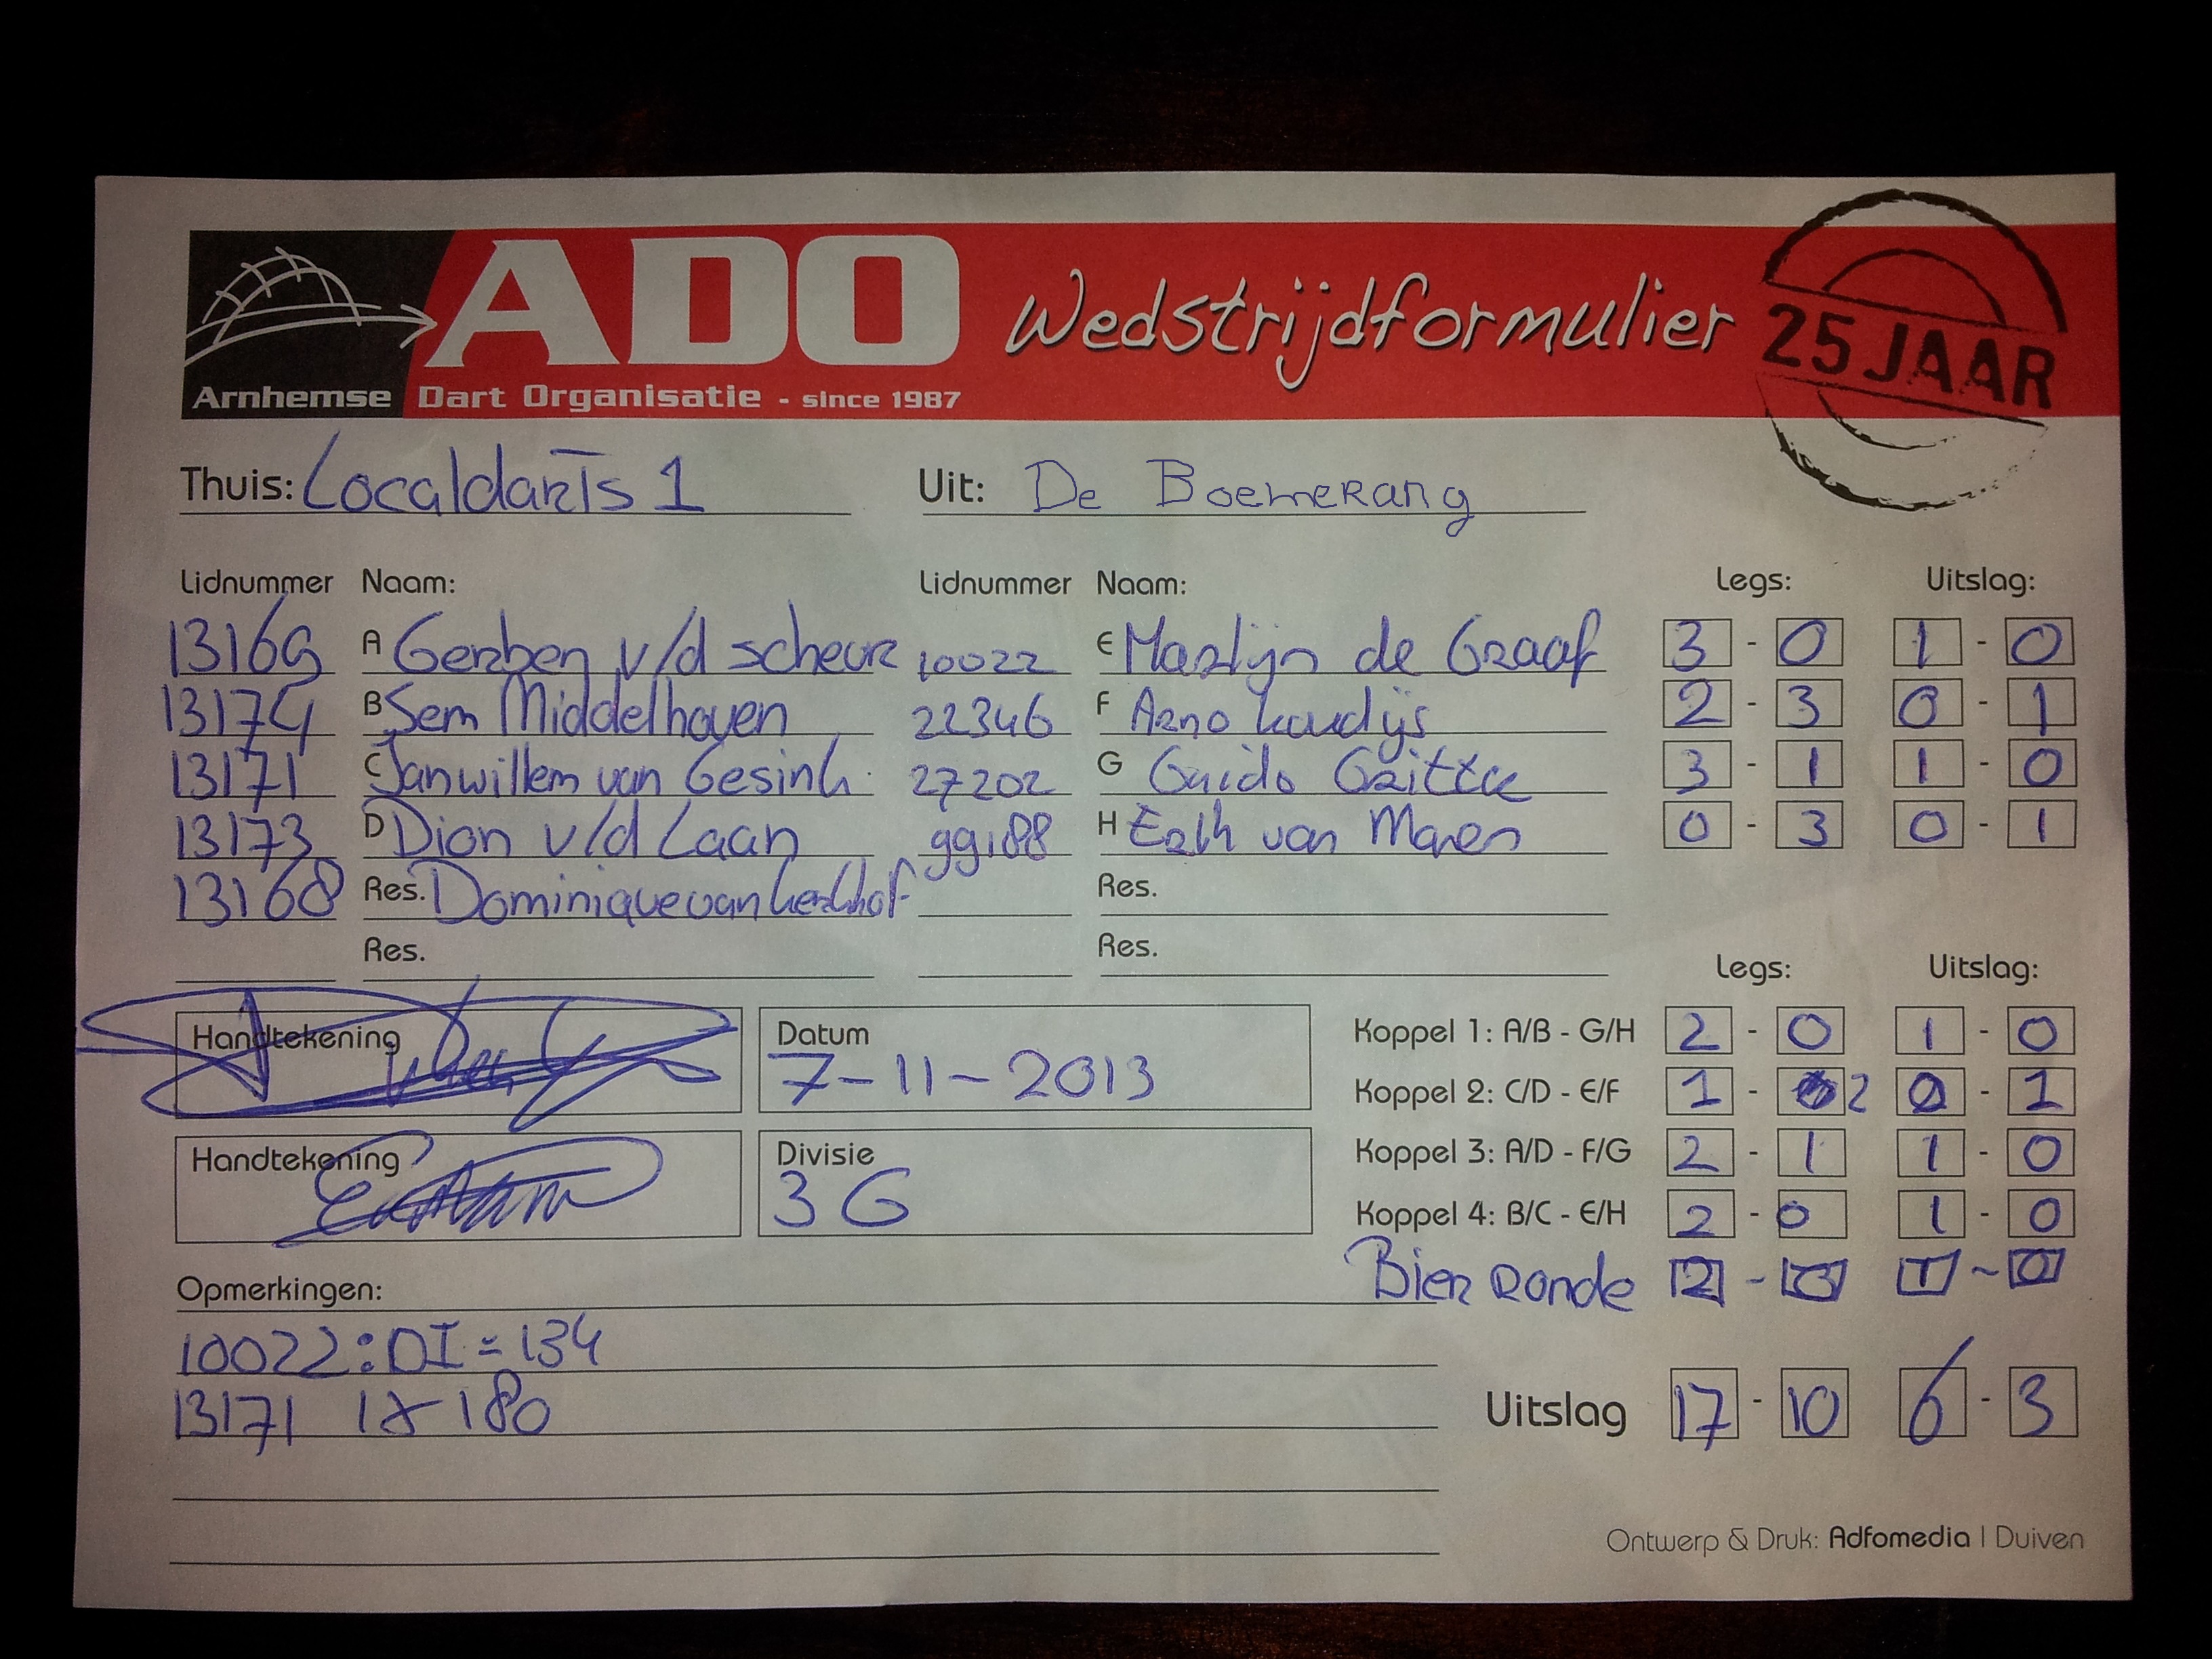 ADO
Arnhemse Dart Organisatie - since 1987
Wedstrijdformulier
25 JAAR
Thuis: Localdarts 1 Uit: De Boemerang
Lidnummer Naam: Lidnummer Naam: Legs: Uitslag:
13169 A Gerben v/d scheur 10022 E Martijn de Graaf 3 - 0 1 - 0
13174 B Sem Middelhoven 22346 F Arno kurdijs 2 - 3 0 - 1
13171 C Janwillem van Gesink 27202 G Guido Grittke 3 - 1 1 - 0
13173 D Dion v/d Laan 99188 H Erik van Maren 0 - 3 0 - 1
13168 Res. Dominique van kerkhof Res.
Res. Res.
Legs: Uitslag:
Handtekening Datum Koppel 1: A/B - G/H 2 - 0 1 - 0
7-11-2013 Koppel 2: C/D - E/F 1 - 2 0 - 1
Handtekening Divisie Koppel 3: A/D - F/G 2 - 1 1 - 0
3G Koppel 4: B/C - E/H 2 - 0 1 - 0
Bier ronde 2 - 0 1 - 0
Opmerkingen:
10022: DI = 134
13171 1x 180
Uitslag 17 - 10 6 - 3
Ontwerp & Druk: Adfomedia | Duiven